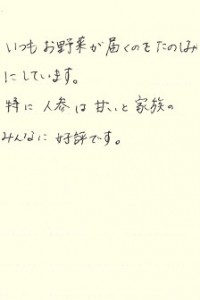 いつもお野菜が届くのをたのしみ
にしています。
特に人参は甘いと家族の
みんなに好評です。